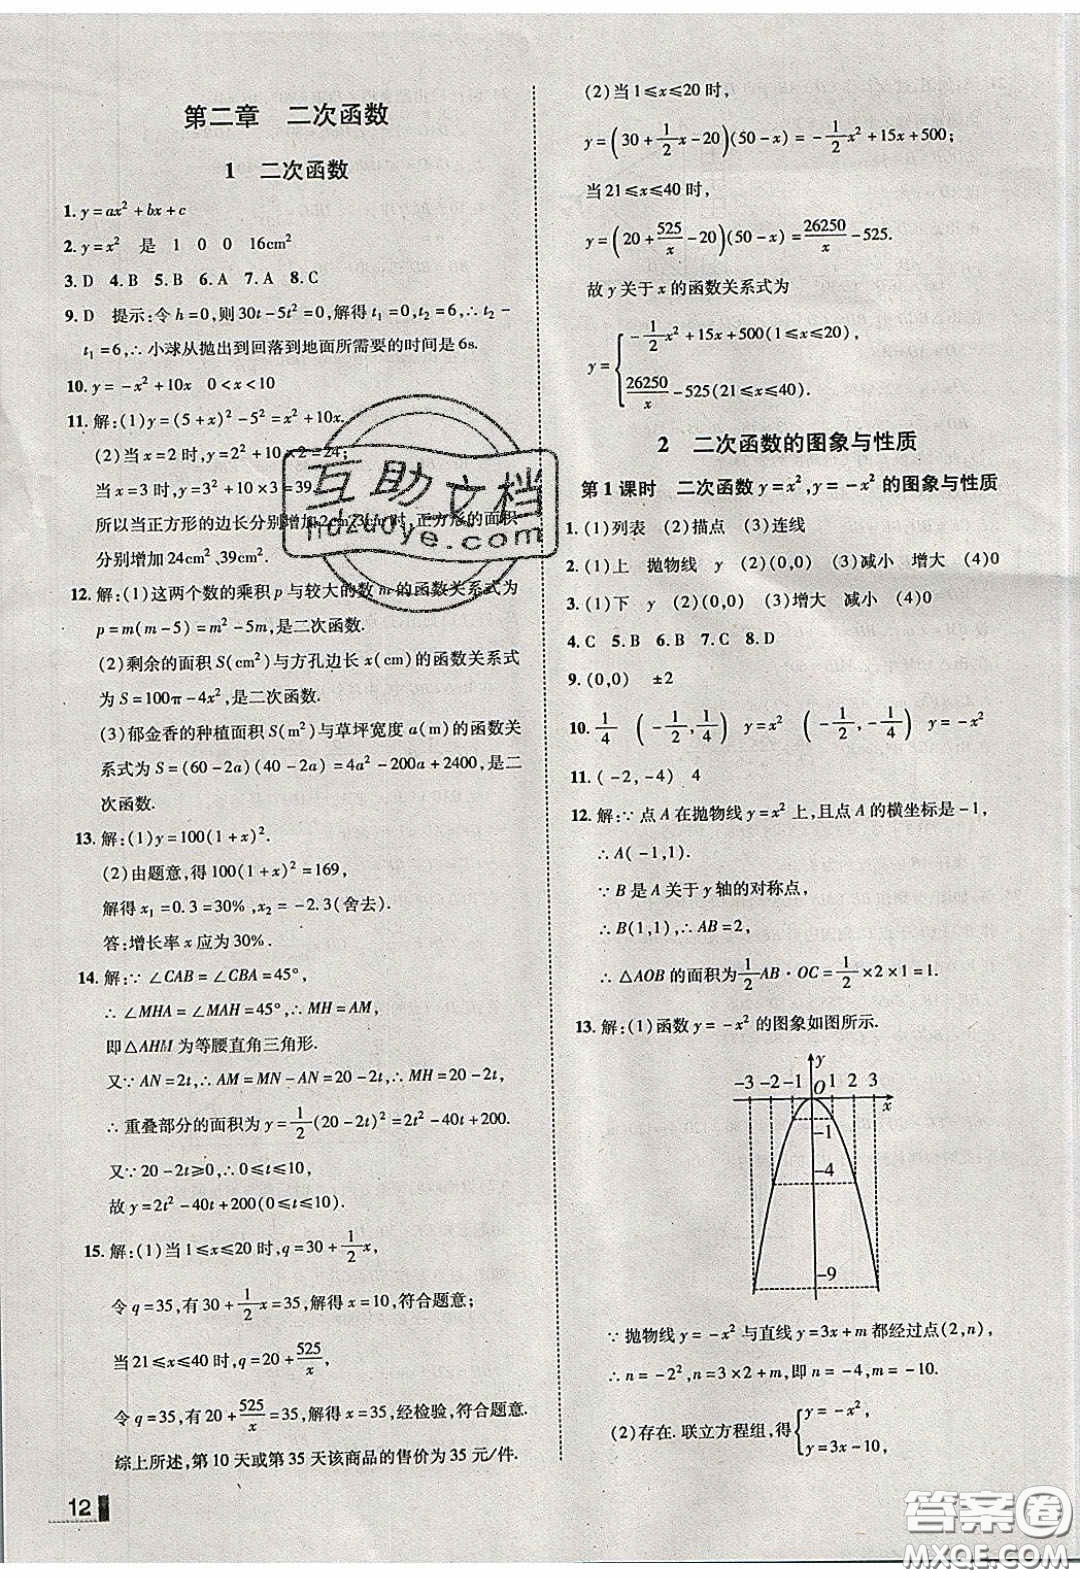 第二章 二次函数
1 二次函数
1. y=ax²+bx+c
2. y=x² 是 1 0 0 16cm²
3. D 4. B 5. B 6. A 7. A 8. C
9. D 提示:令h=0,则30t-5t²=0,解得t₁=0,t₂=6,∴t₂-
t₁=6,∴小球从抛出到回落到地面所需要的时间是6s.
10. y=-x²+10x 0<x<10
11. 解:(1)y=(5+x)²-5²=x²+10x.
(2)当x=2时,y=2²+10×2=24;
当x=3时,y=3²+10×3=39.
所以当正方形的边长分别增加2cm,3cm时,正方形的面积
分别增加24cm²、39cm².
12. 解:(1)这两个数的乘积p与较大的数m的函数关系式为
p=m(m-5)=m²-5m,是二次函数.
(2)剩余的面积S(cm²)与方孔边长x(cm)的函数关系式
为S=100π-4x²,是二次函数.
(3)郁金香的种植面积S(m²)与草坪宽度a(m)的函数关
系式为S=(60-2a)(40-2a)=4a²-200a+2400,是二
次函数.
13. 解:(1)y=100(1+x)².
(2)由题意,得100(1+x)²=169,
解得x₁=0.3=30%,x₂=-2.3(舍去).
答:增长率x应为30%.
14. 解:∵∠CAB=∠CBA=45°,
∴∠MHA=∠MAH=45°,∴MH=AM,
即△AHM为等腰直角三角形.
又∵AN=2t,∴AM=MN-AN=20-2t,∴MH=20-2t,
∴重叠部分的面积为y=1/2(20-2t)²=2t²-40t+200.
又∵20-2t≥0,∴0≤t≤10,
故y=2t²-40t+200(0≤t≤10).
15. 解:(1)当1≤x≤20时,q=30+1/2x,
令q=35,有30+1/2x=35,解得x=10,符合题意;
当21≤x≤40时,q=20+525/x,
令q=35,有20+525/x=35,解得x=35,经检验,符合题意.
综上所述,第10天或第35天该商品的售价为35元/件.
12
(2)当1≤x≤20时,
y=(30+1/2x-20)(50-x)=-1/2x²+15x+500;
当21≤x≤40时,
y=(20+525/x-20)(50-x)=26250/x-525.
故y关于x的函数关系式为
y={-1/2x²+15x+500(1≤x≤20),
26250/x-525(21≤x≤40).
2 二次函数的图象与性质
第1课时 二次函数y=x²,y=-x²的图象与性质
1. (1)列表 (2)描点 (3)连线
2. (1)上 抛物线 y (2)(0,0) (3)减小 增大 (4)0
3. (1)下 y (2)(0,0) (3)增大 减小 (4)0
4. C 5. B 6. B 7. C 8. D
9. (0,0) ±2
10. 1/4 (-1/2,1/4) y=x² (-1/2,-1/4) y=-x²
11. (-2,-4) 4
12. 解:∵点A在抛物线y=x²上,且点A的横坐标是-1,
∴A(-1,1).
∵B是A关于y轴的对称点,
∴B(1,1),∴AB=2,
∴△AOB的面积为1/2AB·OC=1/2×2×1=1.
13. 解:(1)函数y=-x²的图象如图所示.
y
-3 -2 -1 O 1 2 3
x
-1
-4
-9
∵抛物线y=-x²与直线y=3x+m都经过点(2,n),
∴n=-2²,n=3×2+m,即n=-4,m=-10.
(2)存在.联立方程组,得{y=-x²,
y=3x-10,
互助文档
hdzuoye.com
答案圈
MXQE.COM